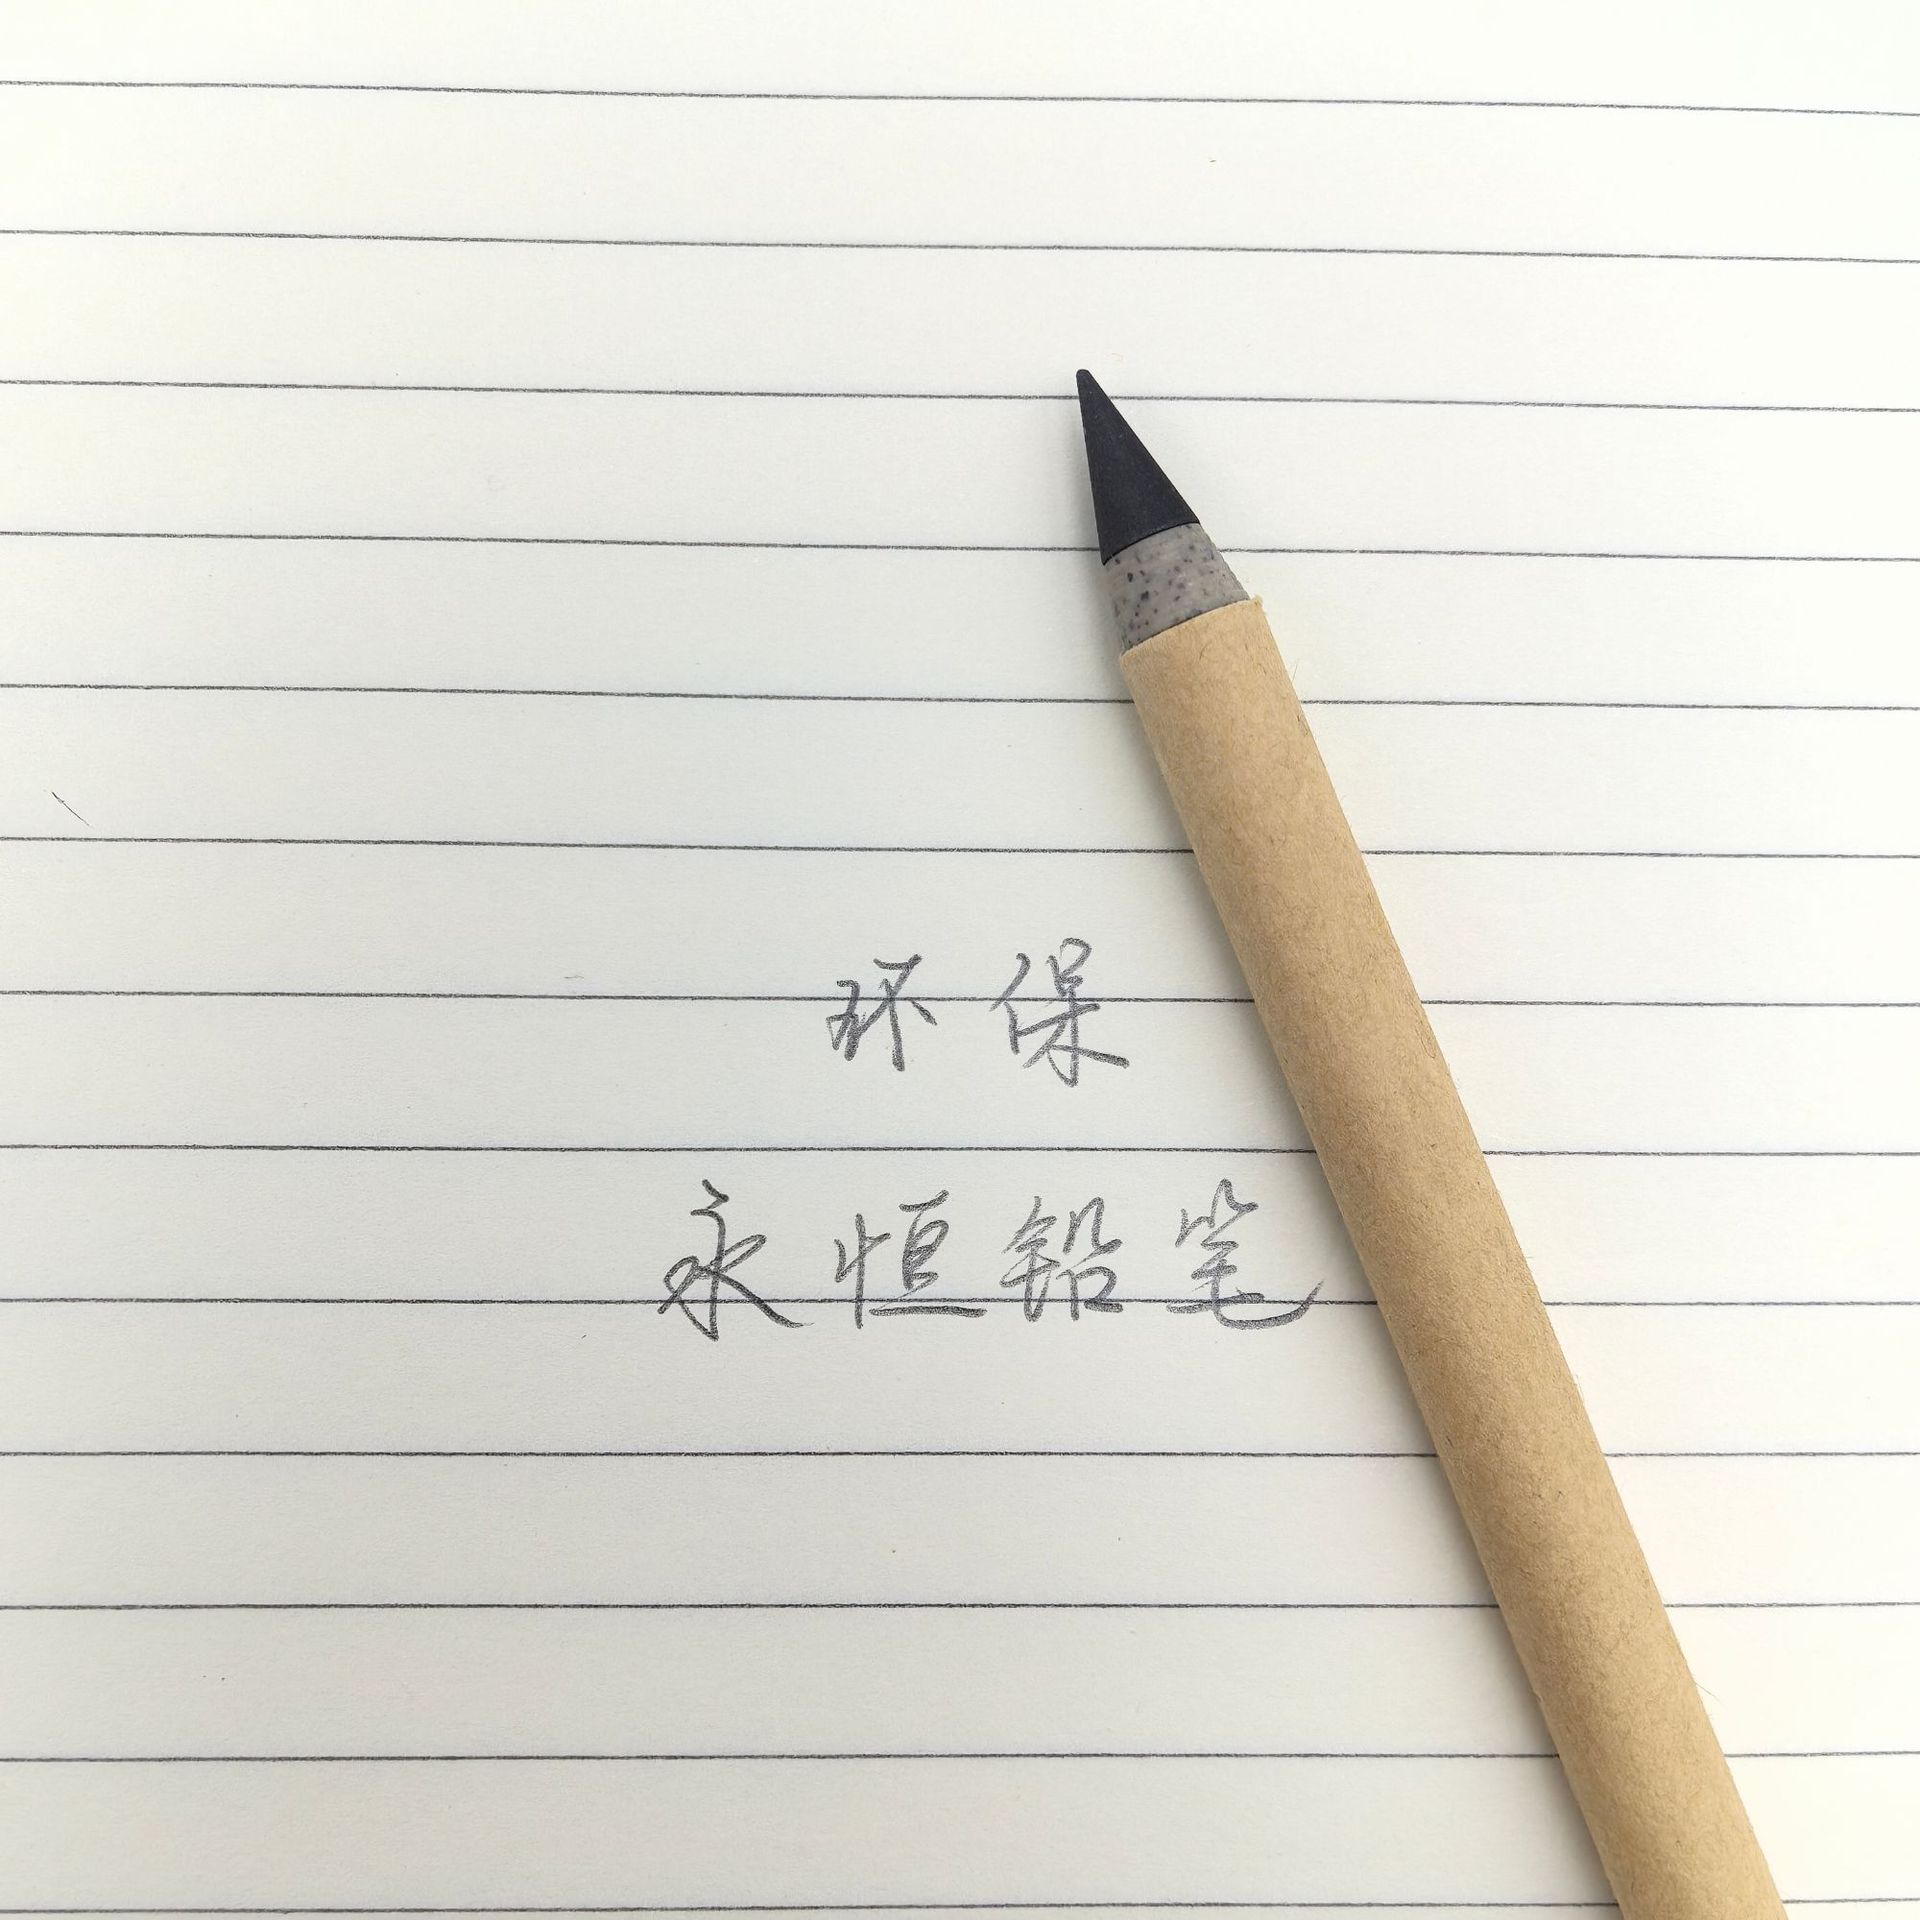 环保
永恒铅笔